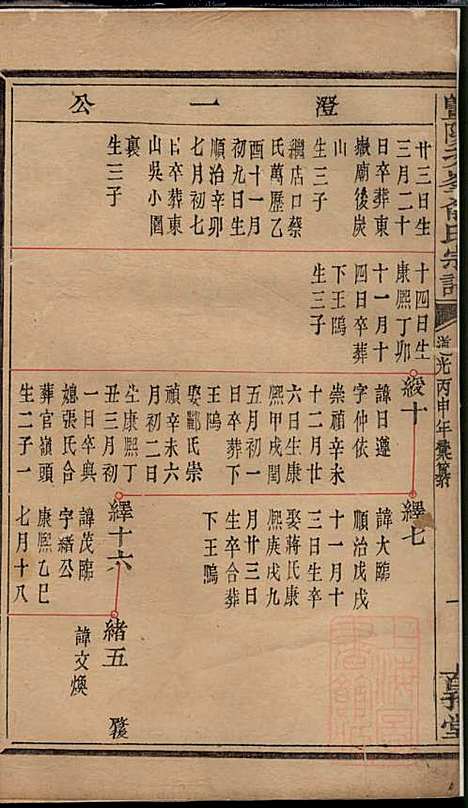 公一澄
暨陽
氏宗譜
道光丙申年彙纂
廿三日生
三月二十
日卒葬東
嶽廟後炭
山
生三子
繼店口祭
氏萬歷乙
酉十一月
初九日生
順治辛卯
七月初七
日卒葬東
山吳小園
裏
生三子
十四日生
康熙丁卯
十一月十
四日卒葬
下王鴟
生三子
緩十
諱日遵
字仲依
崇禎辛未
十二月廿
六日生康
熙甲戌閏
五月初一
日卒葬下
王鴟
娶酈氏崇
禎辛未六
月初二日
生康熙丁
丑三月初
一日卒與
媳張氏合
葬官嶺頭
生二子一
繹七
諱大臨
順治戊戌
十一月十
三日生卒
娶蔣氏康
熙庚戌九
月廿三日
生卒合葬
下王鴟
繹十六
諱茂臨
字緒公
康熙乙巳
七月十八
緒五
諱文煥